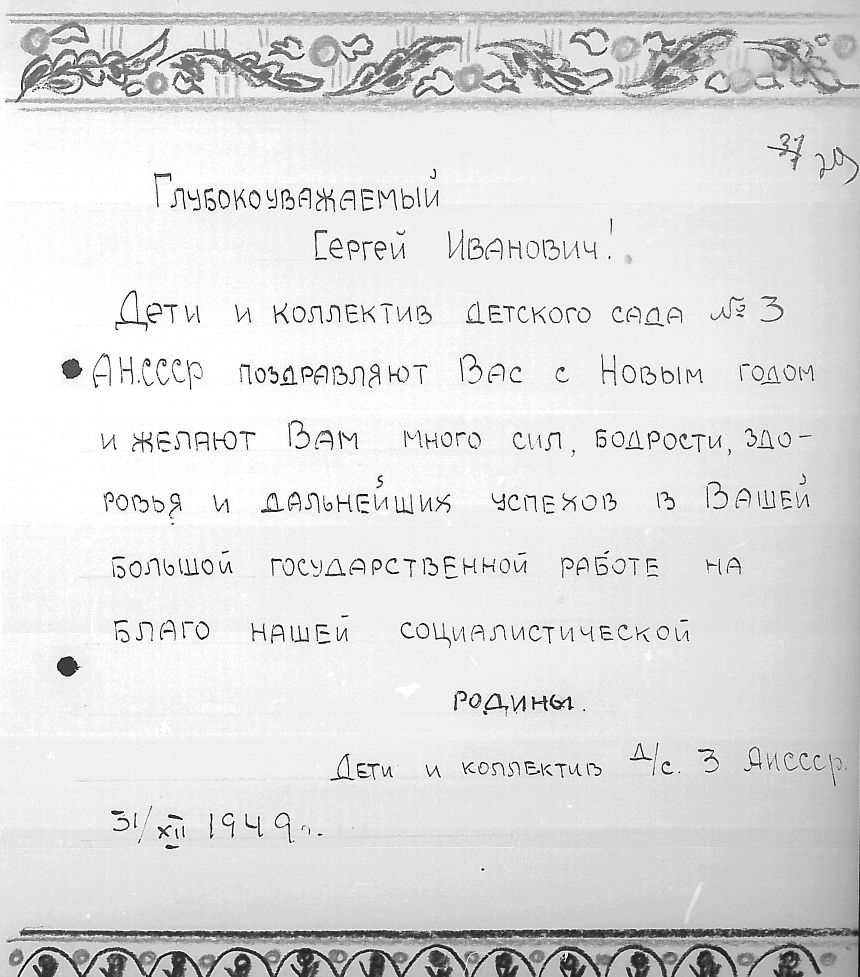 31 29
Глубокоуважаемый
Сергей Иванович!
Дети и коллектив детского сада № 3
АН.СССР поздравляют Вас с Новым годом
и желают Вам много сил, бодрости, здо-
ровья и дальнейших успехов в Вашей
большой государственной работе на
благо нашей социалистической
родины.
Дети и коллектив д/с. 3 АНСССР.
31/XII 1949г.